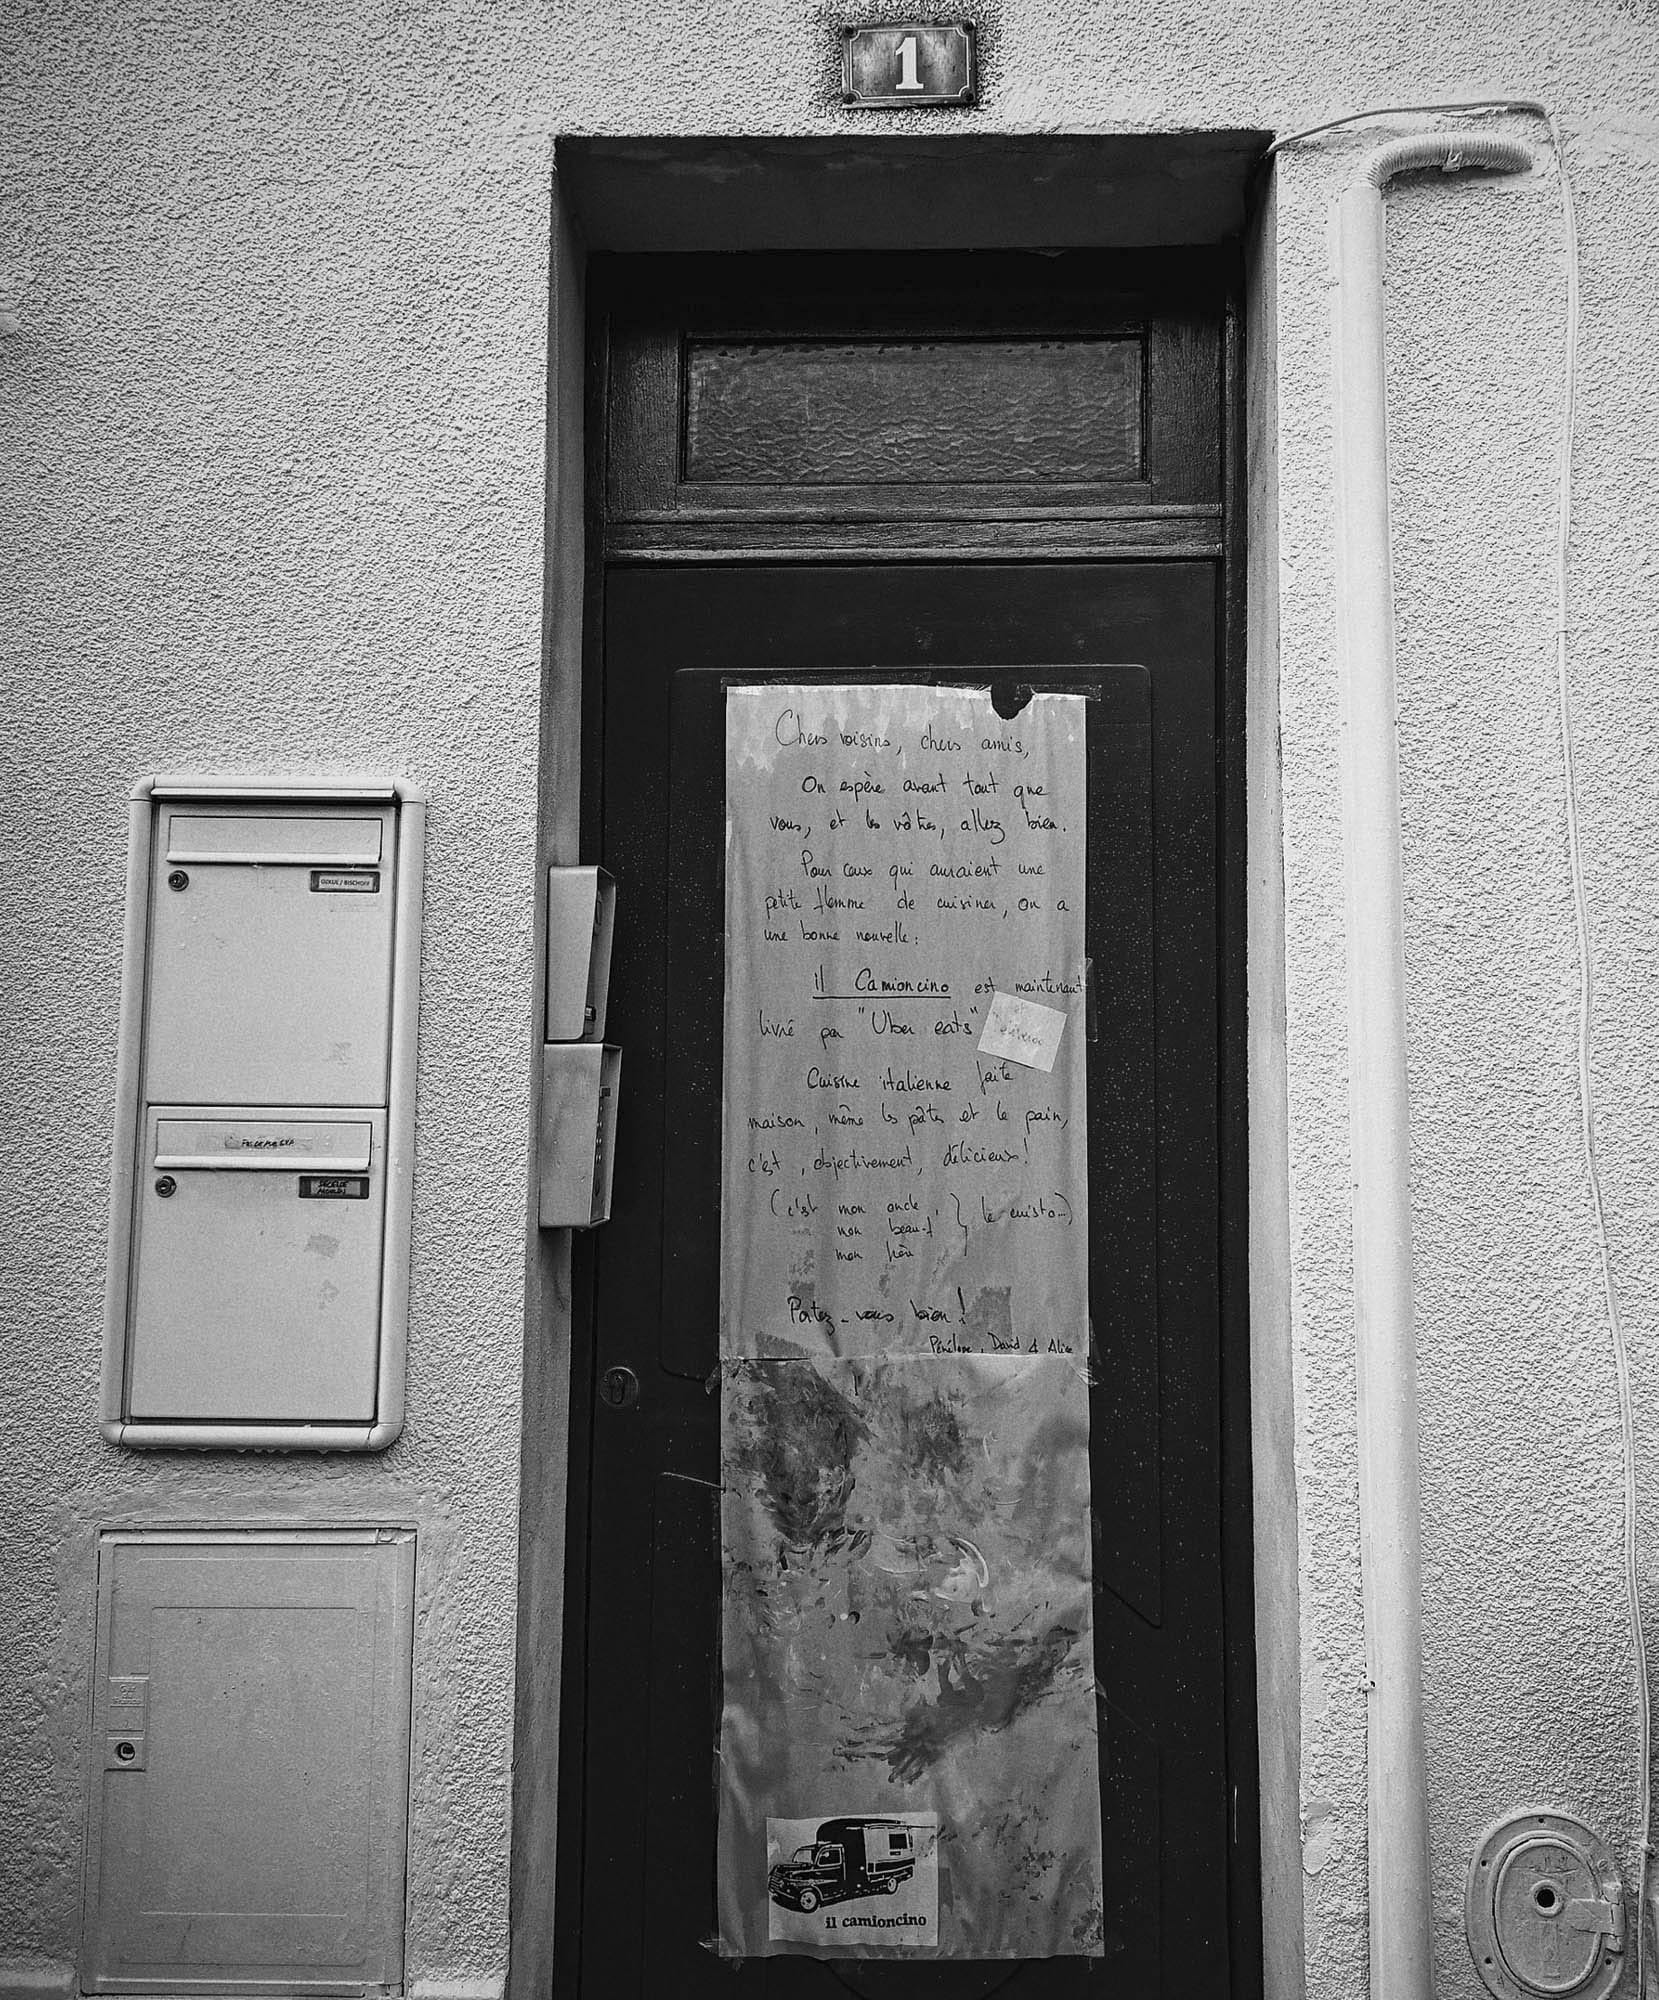 1
Chers voisins, chers amis,
On espère avant tout que
vous, et les vôtres, allez bien.
Pour ceux qui auraient une
petite flemme de cuisiner, on a
une bonne nouvelle :
il Camioncino est maintenant
livré par "Uber eats"
Cuisine italienne faite
maison, même les pâtes et le pain,
c'est, objectivement, délicieux !
(c'est mon oncle, } le cuisto...)
mon beau-f
mon père
Portez-vous bien !
Pénélope, David & Alice
il camioncino
/ BISCHOFF